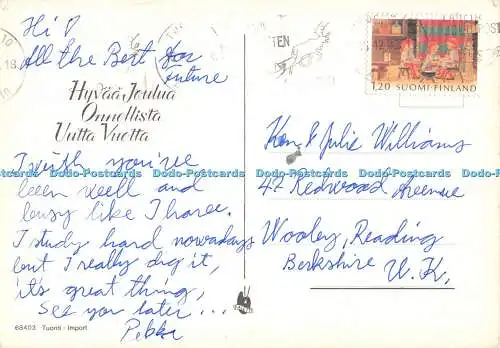 Hi!
All the Best for
Future
Hyvää Joulua
Onnellista
Uutta Vuotta
I wish you've
been well and
busy like I have.
I study hard nowadays
but I really dig it,
it's great thing,
see you later...
Pekka
68403 Tuonti - Import
1,20 SUOMI-FINLAND
Ken & Julie Williams
42 Redwood Avenue
Wooley, Reading
Berkshire
U.K.
Dodo-Postcards Dodo-Postcards Dodo-Postcards Dodo-Postcards Dodo-Postcards
Dodo-Postcards Dodo-Postcards Dodo-Postcards Dodo-Postcards